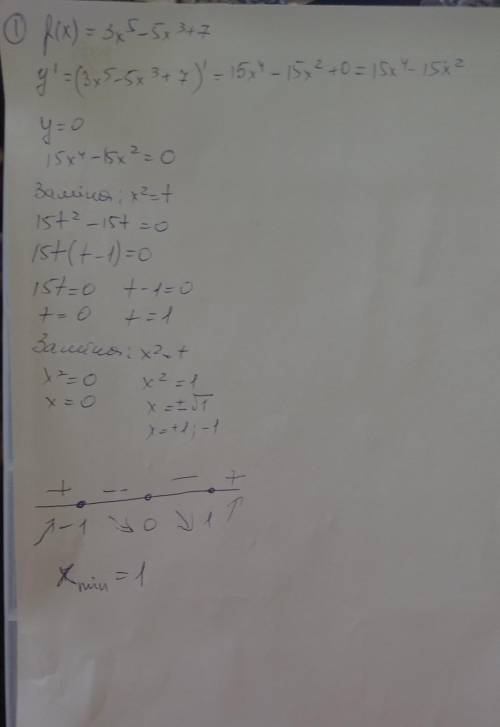 ① f(x) = 3x⁵-5x³+7
y' = (3x⁵-5x³+7)' = 15x⁴-15x²+0 = 15x⁴-15x²
y=0
15x⁴-15x²=0
Заміна: x²=t
15t²-15t=0
15t(t-1)=0
15t=0 t-1=0
t=0 t=1
Заміна: x²=t
x²=0 x²=1
x=0 x=±√1
x=+1;-1
+ -- — +
↗ -1 ↘ 0 ↘ 1 ↗
x min = 1